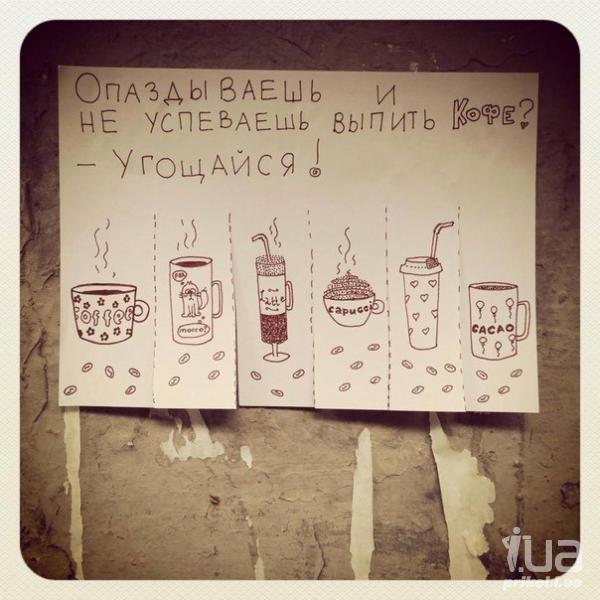 Опаздываешь и
не успеваешь выпить кофе?
– Угощайся!
coffee
Latte
capucci
CACAO
i.ua
prikol.i.ua